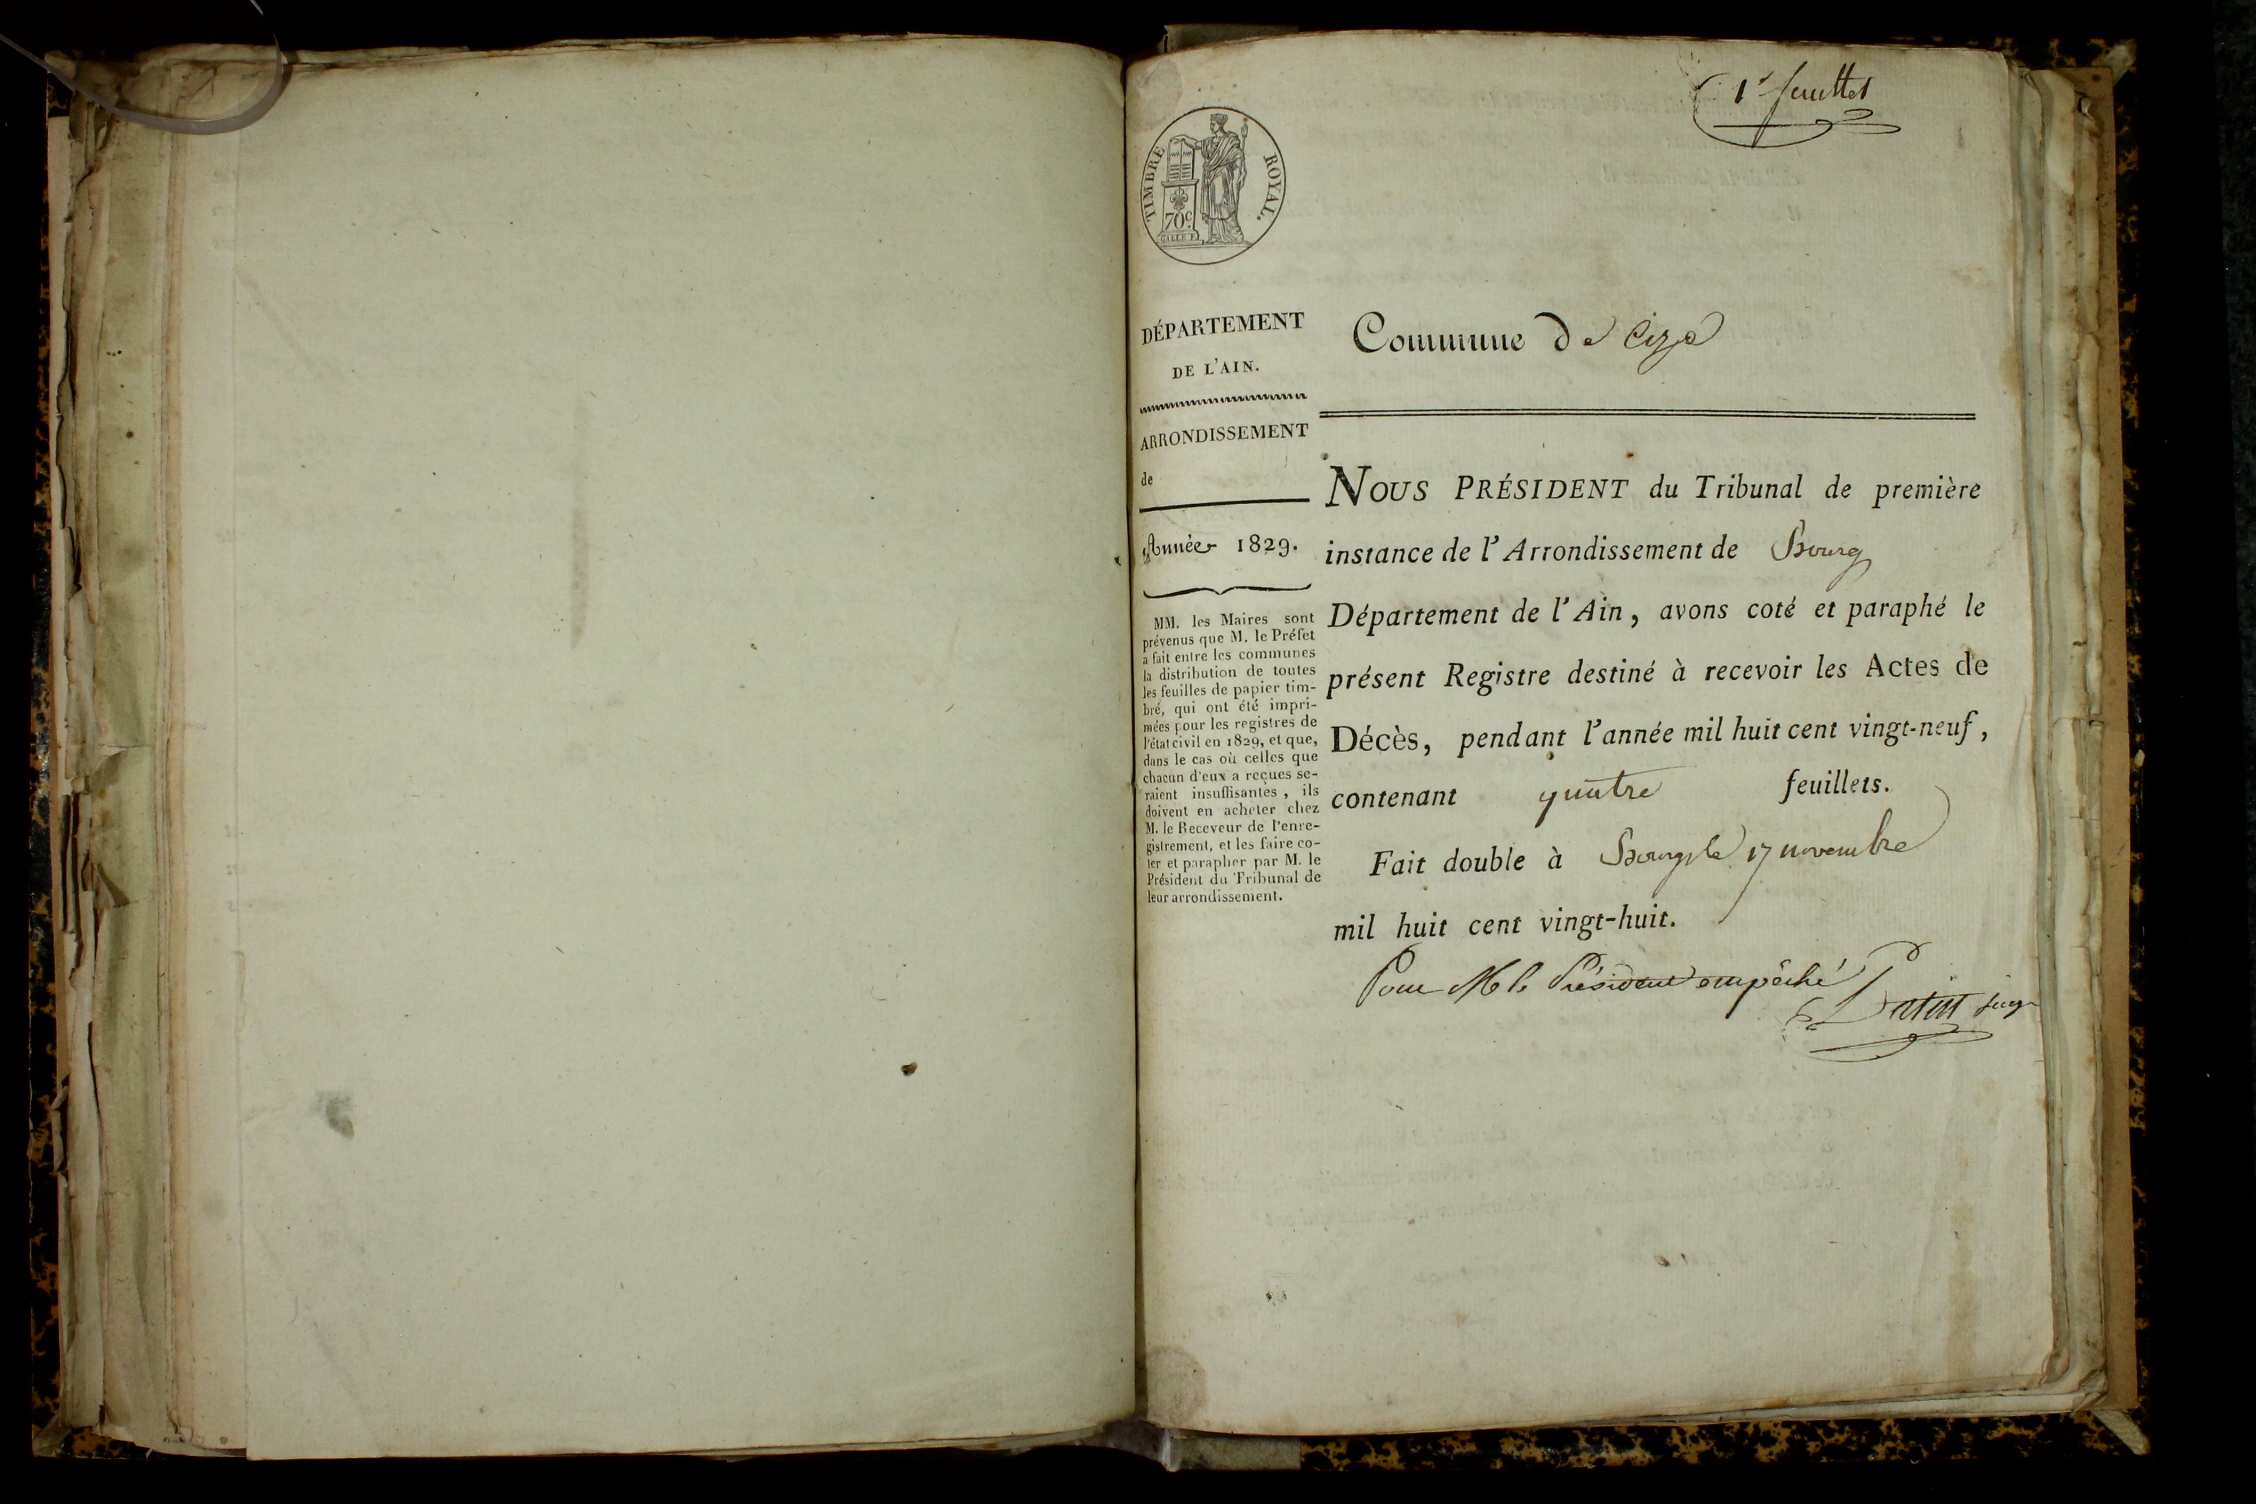 1er feuillet
TIMBRE ROYAL.
70c
DÉPARTEMENT
DE L'AIN.
ARRONDISSEMENT
de
Année 1829.
MM. les Maires sont
prévenus que M. le Préfet
a fait entre les communes
la distribution de toutes
les feuilles de papier tim-
bré, qui ont été impri-
mées pour les registres de
l'état civil en 1829, et que,
dans le cas où celles que
chacun d'eux a reçues se-
raient insuffisantes, ils
doivent en acheter chez
M. le Receveur de l'enre-
gistrement, et les faire co-
ter et parapher par M. le
Président du Tribunal de
leur arrondissement.
Commune de Cize
NOUS PRÉSIDENT du Tribunal de première
instance de l'Arrondissement de Bourg
Département de l'Ain, avons coté et paraphé le
présent Registre destiné à recevoir les Actes de
Décès, pendant l'année mil huit cent vingt-neuf,
contenant quatre feuillets.
Fait double à Bourg le 17 novembre
mil huit cent vingt-huit.
Pour M le Président empêché
juge